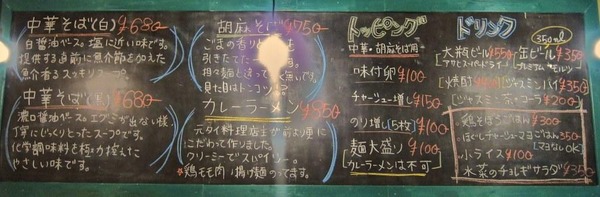 中華そば(白)¥680
白醤油ベース。塩に近い味です。
提供する直前に魚介節を加えた
魚介香るスッキリスープ。
中華そば(黒)¥680
濃口醤油ベース。エグミが出ない様
丁寧にじっくりとったスープです。
化学調味料を極力控えた
やさしい味です。
胡麻そば ¥750
ごまの香り
引きたて
担々麺と違って 無いです。
見た目はトンコツ
カレーラーメン ¥850
元タイ料理店主が前より更に
こだわって作りました。
クリーミーでスパイシー。
*鶏モモ肉、揚げ麺のってます。
トッピング
中華・胡麻そば用
味付卵 ¥100
チャーシュー増し ¥150
のり増し[5枚] ¥100
麺大盛り ¥100
(カレーラーメンは不可)
ドリンク
350ml
大瓶ビール ¥550 缶ビール ¥350
[アサヒスーパードライ] [プレミアムモルツ]
[焼酎] ¥400 [ジャスミンハイ] ¥350
[ジャスミン茶・コーラ ¥200]
鶏そぼろごはん ¥300
ほぐしチャーシューマヨごはん 350
小ライス ¥100 [マヨなしOK]
水菜のチョレギサラダ ¥350